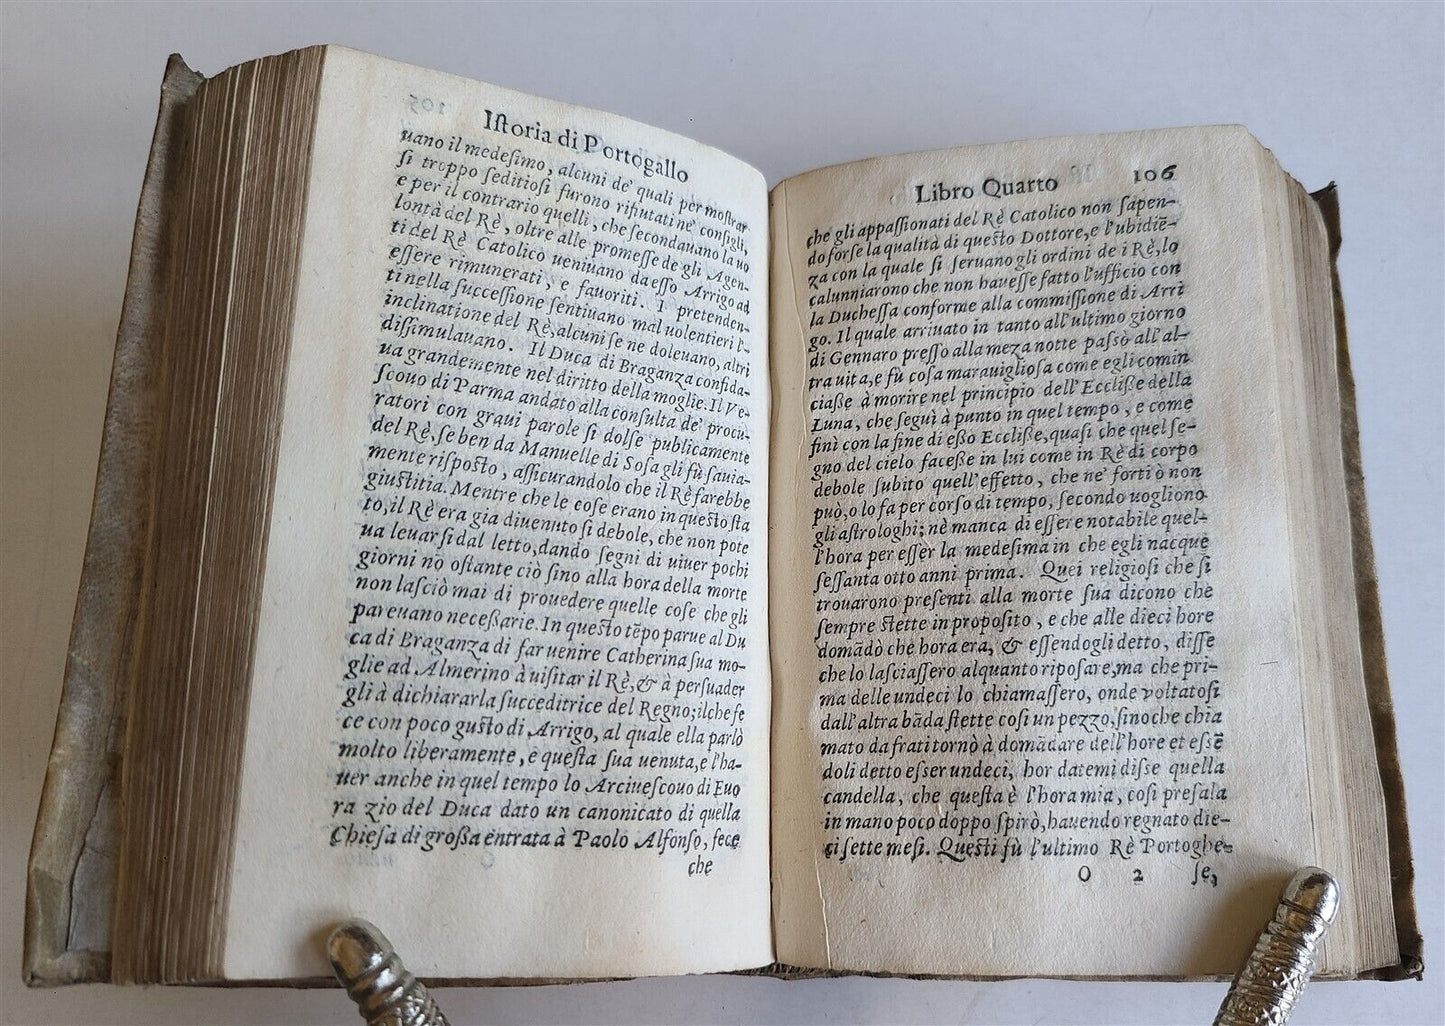 Iſtoria di Portogallo
uano il medeſimo, alcuni de' quali per moſtrar
ſi troppo ſeditioſi furono rifiutati ne' conſigli,
e per il contrario quelli, che ſecondauano la uo
lontà del Rè, oltre alle promeſſe de gli Agen-
ti del Rè Catolico ueniuano da eſſo Arrigo ad
eſſere rimunerati, e fauoriti. I pretenden-
ti nella ſucceſſione ſentiuano mal uolentieri l'-
inclinatione del Rè, alcuni ſe ne doleuano, altri
diſſimulauano. Il Duca di Braganza confida-
ua grandemente nel diritto della moglie. Il Ve-
ſcouo di Parma andato alla conſulta de' procu-
ratori con graui parole ſi dolſe publicamente
del Rè, ſe ben da Manuelle di Soſa gli fù ſauia-
mente riſpoſto, aſſicurandolo che il Rè farebbe
giuſtitia. Mentre che le coſe erano in queſto ſta
to, il Rè era gia diuenuto ſi debole, che non pote
ua leuarſi dal letto, dando ſegni di uiuer pochi
giorni nō oſtante ciò ſino alla hora della morte
non laſciò mai di prouedere quelle coſe che gli
pareuano neceſſarie. In queſto tēpo parue al Du
ca di Braganza di far uenire Catherina ſua mo-
glie ad Almerino à uiſitar il Rè, & à perſuader
gli à dichiararla ſucceditrice del Regno; ilche fe
ce con poco guſto di Arrigo, al quale ella parlò
molto liberamente, e queſta ſua uenuta, e l'ha-
uer anche in quel tempo lo Arciueſcouo di Euo
ra zio del Duca dato un canonicato di quella
Chieſa di groſſa entrata à Paolo Alfonſo, fece
che
Libro Quarto 106
che gli appaſſionati del Rè Catolico non ſapen-
do forſe la qualità di queſto Dottore, e l'ubidiē-
za con la quale ſi ſeruano gli ordini de i Rè, lo
calunniarono che non haueſſe fatto l'ufficio con
la Ducheſſa conforme alla commiſſione di Arri
go. Il quale arriuato in tanto all'ultimo giorno
di Gennaro preſſo alla meza notte paſsò all'al-
tra uita, e fù coſa marauiglioſa come egli comin
ciaſſe à morire nel principio dell'Eccliſſe della
Luna, che ſeguì à punto in quel tempo, e come
finì con la fine di eſſo Eccliſſe, quaſi che quel ſe-
gno del cielo faceſſe in lui come in Rè di corpo
debole ſubito quell'effetto, che ne' forti ò non
può, o lo fa per corſo di tempo, ſecondo uogliono
gli aſtrologhi; nè manca di eſſere notabile quel-
l'hora per eſſer la medeſima in che egli nacque
ſeſſanta otto anni prima. Quei religioſi che ſi
trouarono preſenti alla morte ſua dicono che
ſempre ſtette in propoſito, e che alle dieci hore
domādò che hora era, & eſſendogli detto, diſſe
che lo laſciaſſero alquanto ripoſare, ma che pri-
ma delle undeci lo chiamaſſero, onde voltatoſi
dall'altra bāda ſtette coſi un pezzo, ſino che chia
mato da frati tornò à domādare dell'hore et eſſē
doli detto eſſer undeci, hor datemi diſſe quella
candella, che queſta è l'hora mia, coſi preſala
in mano poco doppo ſpirò, hauendo regnato die-
ci ſette meſi. Queſti fù l'ultimo Rè Portoghe-
O 2 ſe,